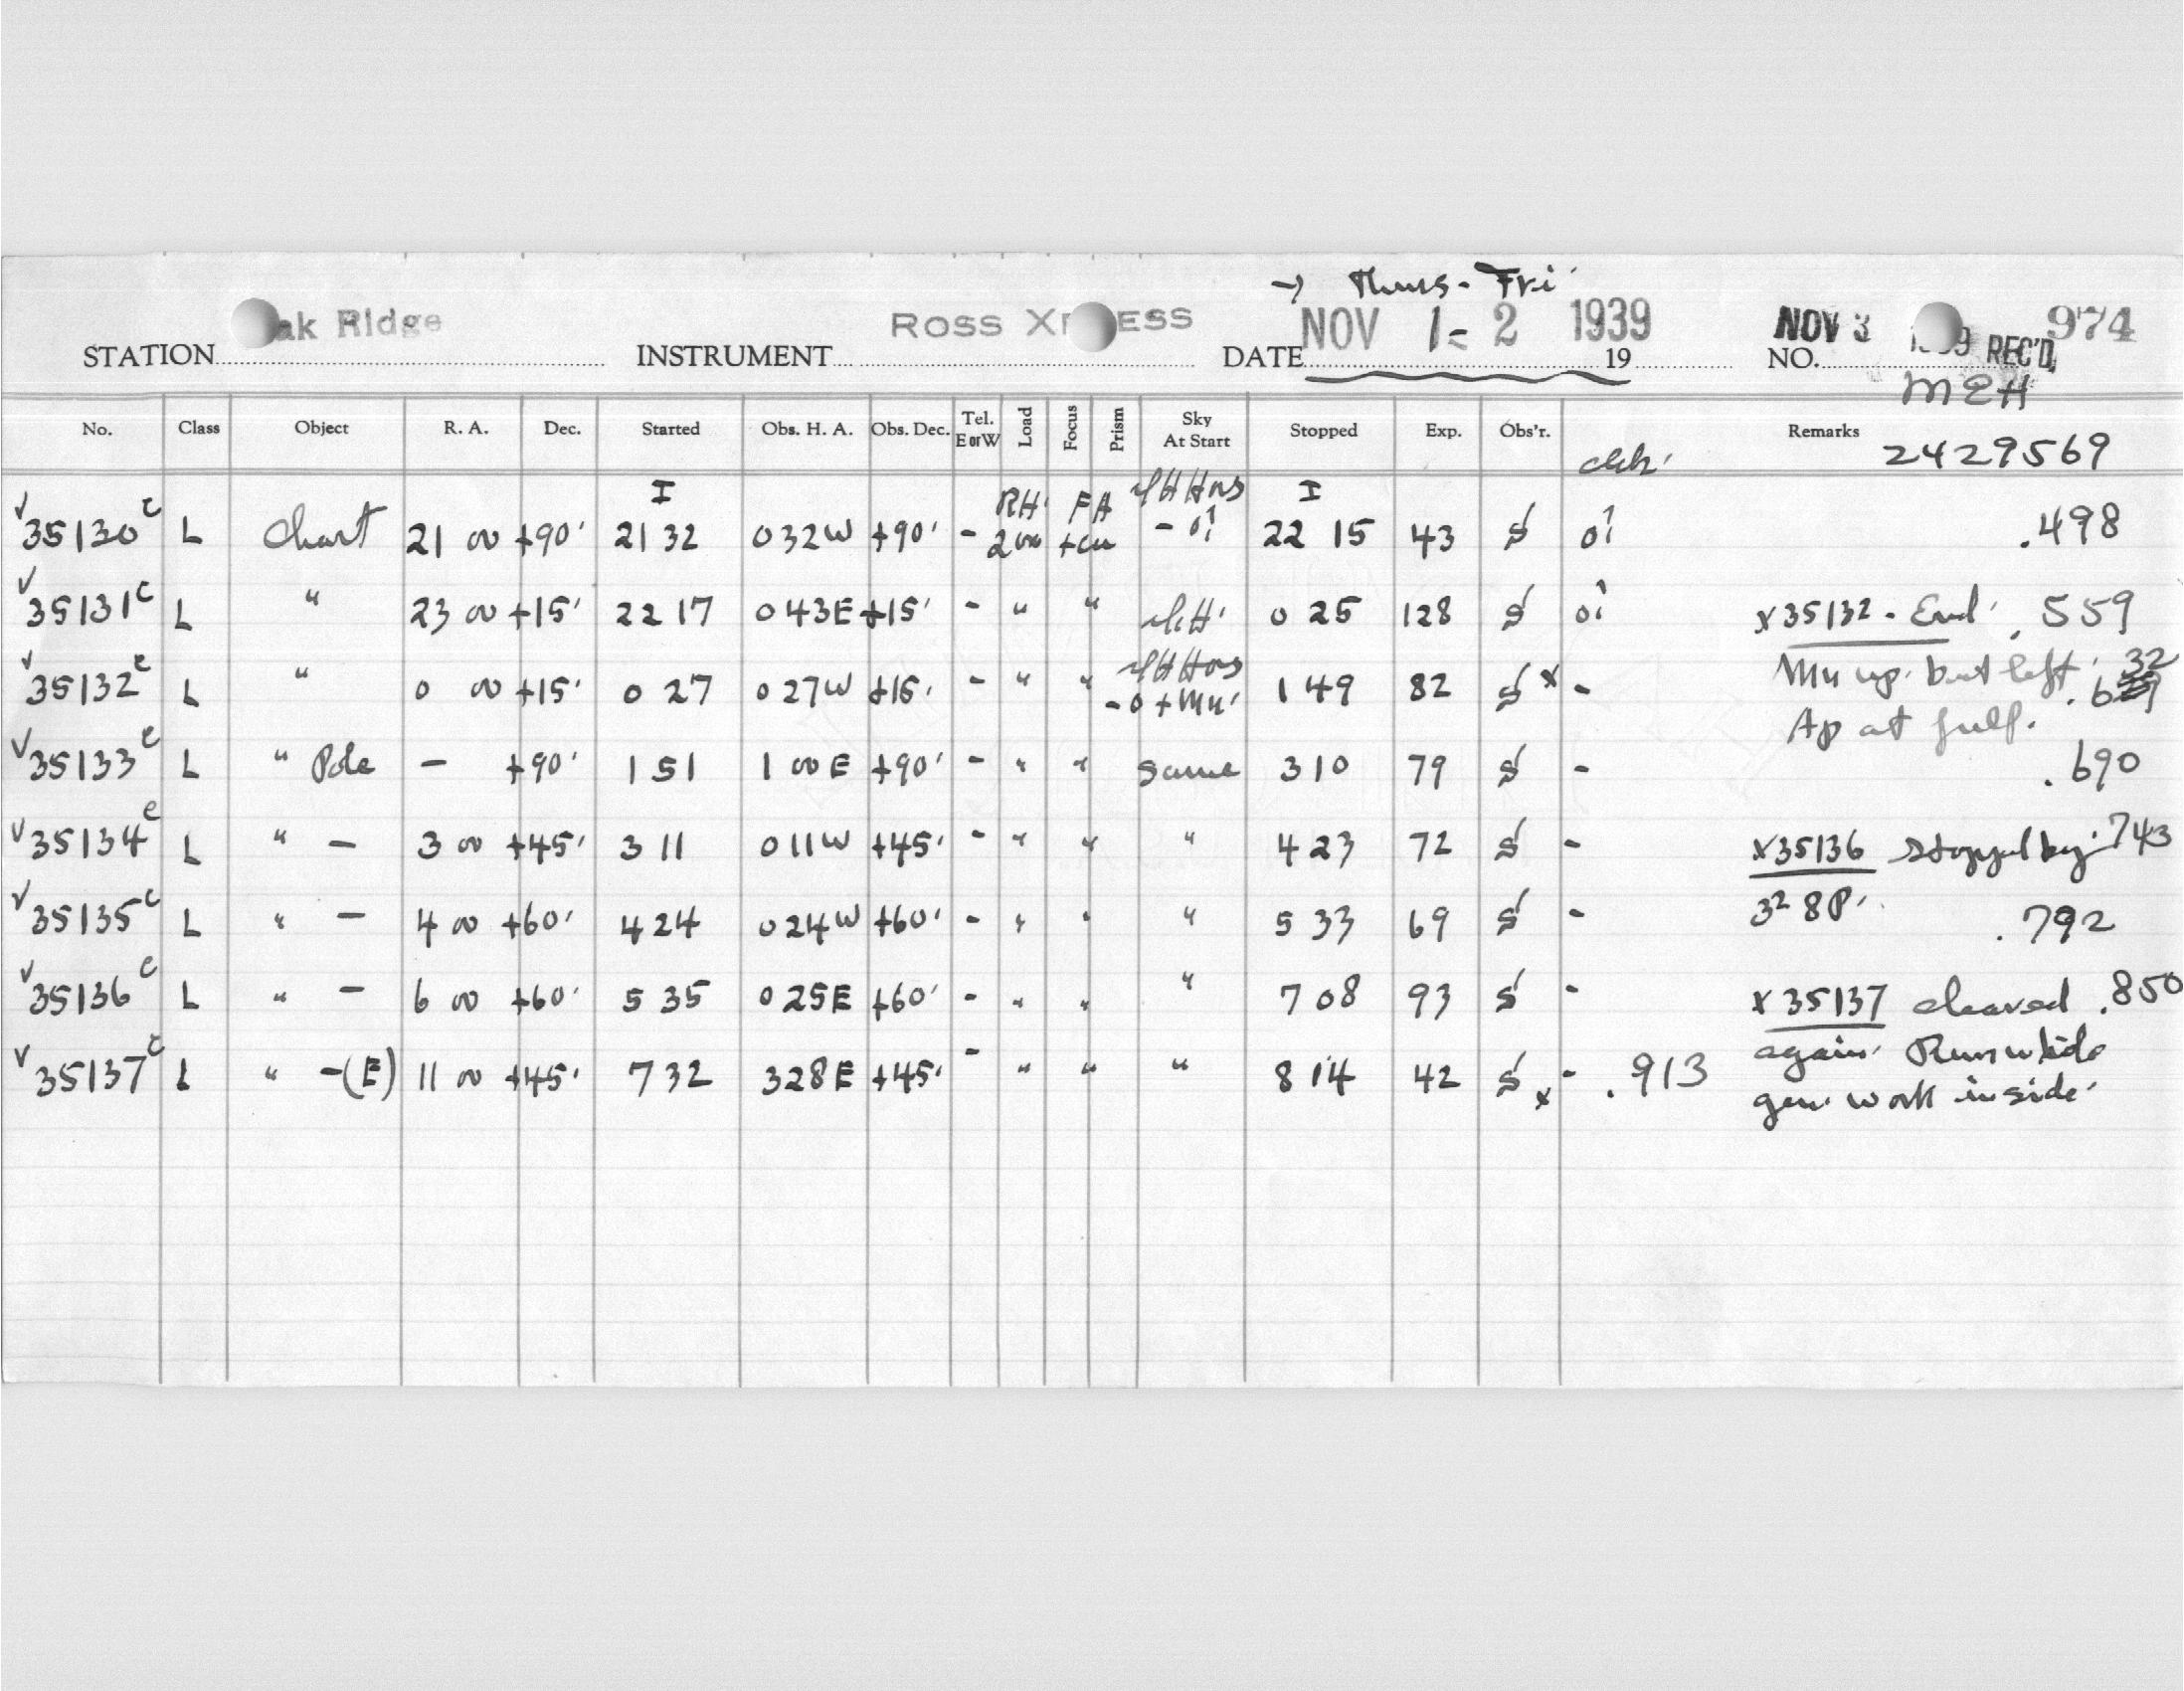 → Thurs - Fri
STATION ak Ridge INSTRUMENT ROSS X ESS DATE NOV 1 - 2 1939 19 NO. NOV 3 REC'D, 974
MEH
No. Class Object R. A. Dec. Started Obs. H. A. Obs. Dec. Tel. E or W Load Focus Prism Sky At Start Stopped Exp. Obs'r. Remarks 2429569
I RH FA I
35130 c L Chart 21 00 +90' 21 32 0 32W +90' - 22 15 43 S .498
35131 c L " 23 00 +15' 22 17 0 43E +15' - " " 0 25 128 S x35132 - End .559
35132 c L " 0 00 +15' 0 27 0 27W +15' - " " 1 49 82 S x - Mn up. but left .632
Ap at full.
35133 c L " Pole - +90' 1 51 1 00E +90' - " " Same 3 10 79 S - .690
35134 c L " - 3 00 +45' 3 11 0 11W +45' - " " " 4 23 72 S - x35136 stopped by .743
35135 c L " - 4 00 +60' 4 24 0 24W +60' - " " " 5 33 69 S - .792
35136 c L " - 6 00 +60' 5 35 0 25E +60' - " " " 7 08 93 S - x35137 cleared .850
35137 c L " -(E) 11 00 +45' 7 32 3 28E +45' - " " " 8 14 42 S x - .913 again.
gen. work inside.